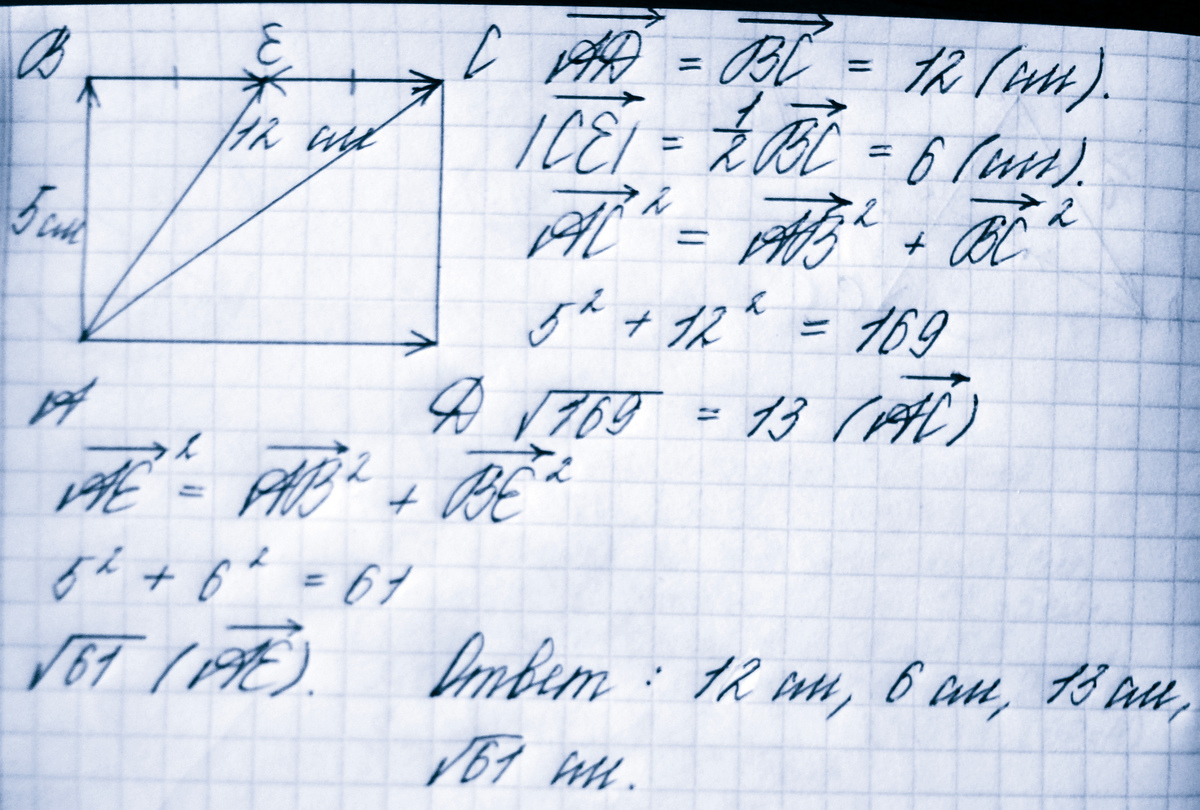 B E C
12 см
5 см
A D
\overrightarrow{AD} = \overrightarrow{BC} = 12 (см).
|\overrightarrow{CE}| = \frac{1}{2} \overrightarrow{BC} = 6 (см).
\overrightarrow{AC}² = \overrightarrow{AB}² + \overrightarrow{BC}²
5² + 12² = 169
√169 = 13 (\overrightarrow{AC})
\overrightarrow{AE}² = \overrightarrow{AB}² + \overrightarrow{BE}²
5² + 6² = 61
√61 (\overrightarrow{AE}).
Ответ: 12 см, 6 см, 13 см,
√61 см.